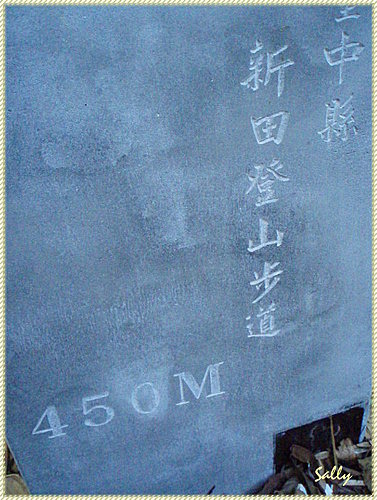 中縣
新田登山步道
450M
Sally